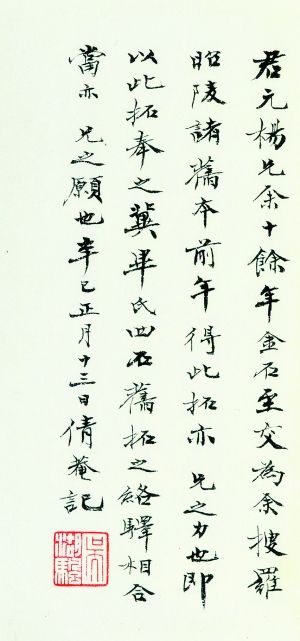 君元楊兄余十餘年金石至交為余搜羅
昭陵諸舊本前年得此拓亦 兄之力也即
以此拓奉之冀畢氏四石舊拓之絡驛相合
當亦 兄之願也辛巳正月十三日倩菴記
吳湖颿